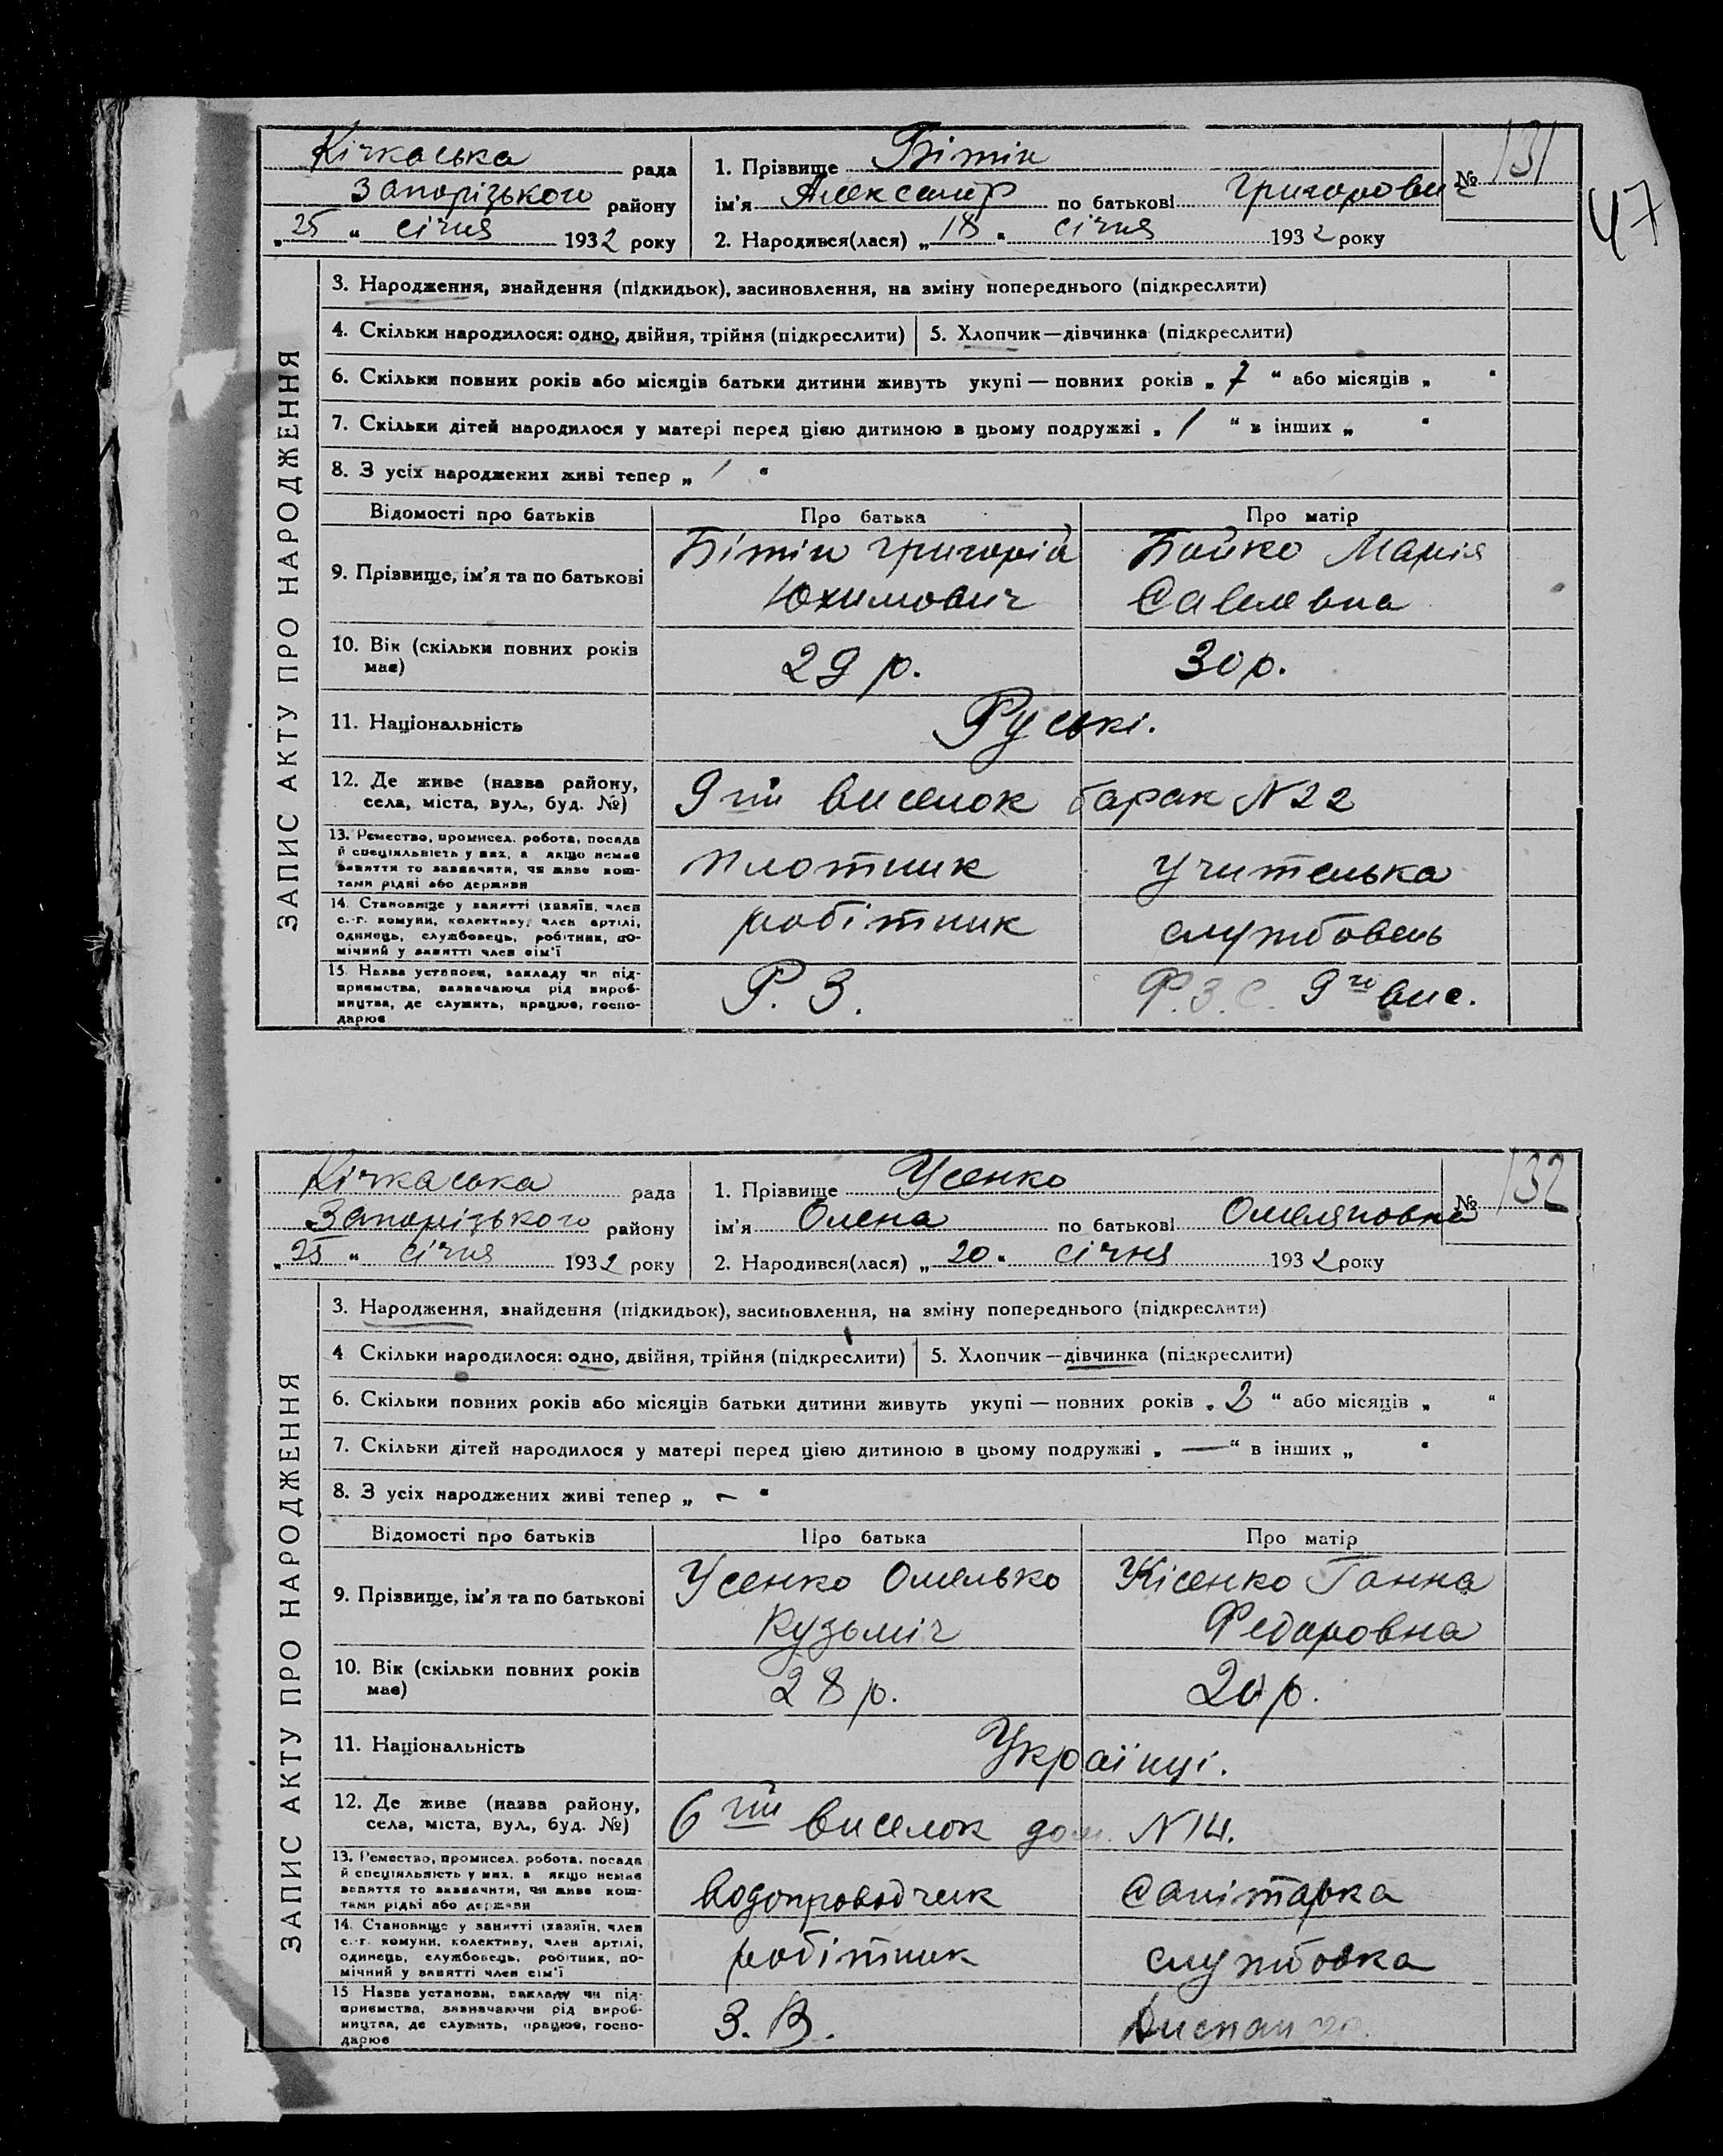 47
Кічкаська рада
Запорізького району
„25“ січня 1932 року
1. Прізвище Бітін
ім'я Александр по батькові Григорович
2. Народився(лася) „18“ січня 1932 року
№ 131
ЗАПИС АКТУ ПРО НАРОДЖЕННЯ
3. Народження, знайдення (підкидьок), засиновлення, на зміну попереднього (підкреслити)
4. Скільки народилося: одно, двійня, трійня (підкреслити) 5. Хлопчик—дівчинка (підкреслити)
6. Скільки повних років або місяців батьки дитини живуть укупі — повних років „7“ або місяців „ “
7. Скільки дітей народилося у матері перед цією дитиною в цьому подружжі „1“ в інших „ “
8. З усіх народжених живі тепер „1“
Відомості про батьків Про батька Про матір
9. Прізвище, ім'я та по батькові
Бітін Григорій
Юхимович
Бойко Марія
Савелевна
10. Вік (скільки повних років
має)
29 р. 30 р.
11. Національність Руські.
12. Де живе (назва району,
села, міста, вул., буд. №)
9тій виселок барак N 22
13. Ремество, промисел. робота, посада
й спеціяльність у них, а якщо немає
заняття то зазначити, чи живе кош-
тами рідні або держави
плотник учителька
14. Становище у занятті (хазяїн, член
с.-г. комуни, колективу, член артілі,
одинець, службовець, робітник, по-
мічний у занятті член сім'ї
робітник службовець
15. Назва установи, закладу чи під-
приємства, зазначаючи рід вироб-
ництва, де служить, працює, госпо-
дарює
Р. З. Ф.З.С. 9го вис.
Кічкаська рада
Запорізького району
„25“ січня 1932 року
1. Прізвище Усенко
ім'я Олена по батькові Омеляновна
2. Народився(лася) „20“ січня 1932 року
№ 132
ЗАПИС АКТУ ПРО НАРОДЖЕННЯ
3. Народження, знайдення (підкидьок), засиновлення, на зміну попереднього (підкреслити)
4 Скільки народилося: одно, двійня, трійня (підкреслити) 5. Хлопчик—дівчинка (підкреслити)
6. Скільки повних років або місяців батьки дитини живуть укупі — повних років „2“ або місяців „ “
7. Скільки дітей народилося у матері перед цією дитиною в цьому подружжі „—“ в інших „ “
8. З усіх народжених живі тепер „—“
Відомості про батьків Про батька Про матір
9. Прізвище, ім'я та по батькові
Усенко Омелько
Кузьміч
Кісенко Ганна
Федоровна
10. Вік (скільки повних років
має)
28 р. 20 р.
11. Національність Українці.
12. Де живе (назва району,
села, міста, вул., буд. №)
6тий виселок дом. N 14.
13. Ремество, промисел. робота, посада
й спеціяльність у них, а якщо немає
заняття то зазначити, чи живе кош-
тами рідні або держави
водопроводчик санітарка
14. Становище у занятті (хазяїн, член
с.-г. комуни, колективу, член артілі,
одинець, службовець, робітник, по-
мічний у занятті член сім'ї
робітник службовка
15 Назва установи, закладу чи під-
приємства, зазначаючи рід вироб-
ництва, де служить, працює, госпо-
дарює
З. В.